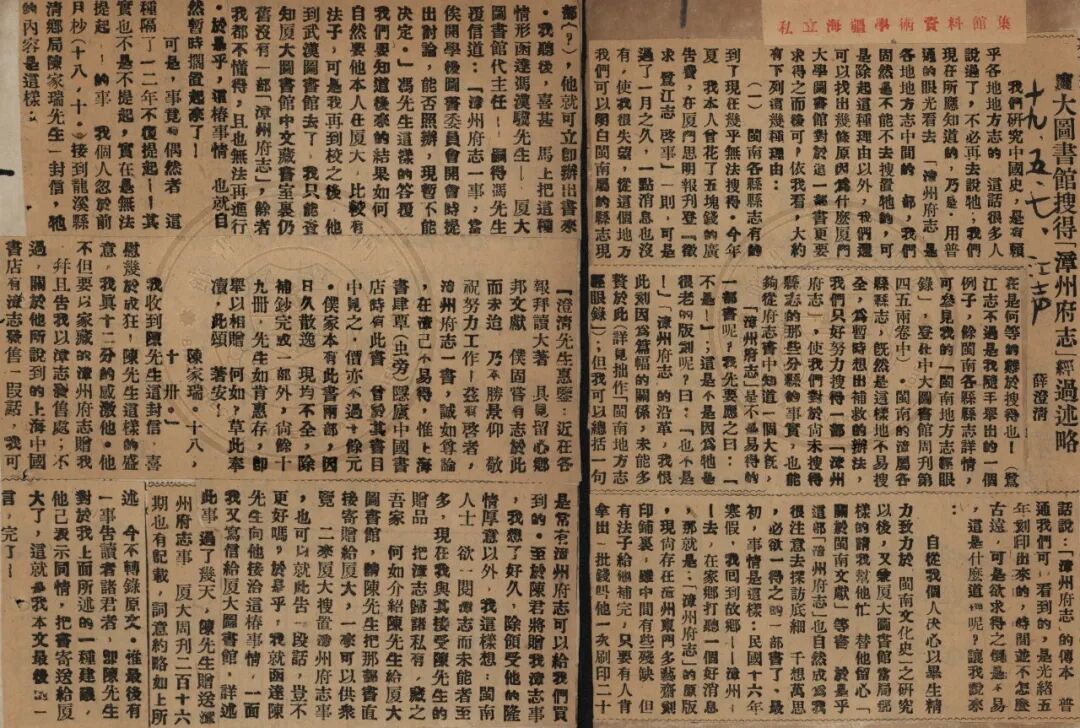 私立海疆學術資料館集
廈大圖書館搜得「漳州府志」經過述略
薛澄清
十九、五、七、江声
我們研究中國史，是有賴
乎各地地方志的 這話很多人
說過了，不必再去說牠；我們
現在所應知道的，乃是・用普
通的眼光看去 「漳州府志」是
各地地方志中間的一部，我們
固然是不能不去搜置牠的，可
是除起這種理由以外，我們還
可以找出幾條原因爲什麼廈門
大學圖書館對於這一部書更要
求得之而後可，依我看，大約
有下列這幾種理由：
（一） 閩南各縣縣志有的
到了現在幾乎無法搜得。今年
夏 我本人曾花了五塊錢的廣
告費，在廈門思明報刊登「徵
求登江志 啓事」一則，可是
過了一月之久，一點消息也沒
有，使我很失望，從這個地方
我們可以明白閩南屬的縣志現
在是何等的難於搜得也！（鷺
江志不過是我隨手舉出的一個
例子，餘閩南各縣縣志詳情，
可參見我的「閩南地方志經眼
錄」，登在中大圖書館周刊第
四五兩卷中）。閩南的漳屬各
縣縣志，旣然是這樣地不易搜
全，爲暫時想出補救的辦法，
我們只好努力搜得一部「漳州
府志」，使我們對於尙未搜得
縣志的那些分縣的事實，也能
夠從府志書中知道一個大槪，
「漳州府志」是不是易得的
一部書呢？我先要應之曰：「
不是！」；這是不是因爲牠是
很老的版刻呢？曰：「也不是
！」漳州府志 的沿革，我恨
此刻因爲篇幅的關係，未能多
贅於此（詳見拙作「閩南地方志
經眼錄」）；但我可以總括一句
話說：「漳州府志」的傳本 普
通我們可 看到的，是光緒五
年刻印出來的，時間並不怎麼
古遠，可是欲求得之倒是不易
，這是什麼道 呢？讓我說來
自從我個人決心以畢生精
力致力於「閩南文化史」之研究
以後，又兼廈大圖書館當局那
樣的請我就他忙 替他留心「
關於閩南文獻」等書 於是乎
這部「漳州府志」也自然成爲我
很注意去探訪底細 千想萬思
，必欲一得之的一部書了。最
初，事情是這樣：民國十六年
寒假，我回到故鄉——漳州
——去，在家鄉打聽一個好消息
，那就是：「漳州府志」的原版
，現尙存在漳州東門多藝齋刻
印鋪裏，雖中間有些殘缺 但
有法子給補完，只要有人肯
拿出一批錢叫他一次刷印二十
部（？），他就可立卽辦出書來
。我聽後，喜甚 馬上把這種
情形函達馮漢驥先生——廈大
圖書館代主任——嗣得馮先生
覆信道：「漳州府志一事，當
俟開學後圖書委員會開會時提
出討論，能否照辦，現暫不能
決定。」馮先生這樣的答覆
我們要知道後來的結果如何
自然要本人住在廈大・比較有
法子，可是我再到校之後 他
到武漢圖書館去了 我只能查
知廈大圖書館中文藏書室裏仍
舊沒有一部「漳州府志」，餘者
我都不懂得，且也無法再進行
。於是乎，這椿事情 也就自
然暫時擱置起來了！
可是，事竟有偶然者 這
種隔了一二年不復提起——其
實也不是不提起，實在是無法
提起——的事 我個人忽於前
月抄（十八・十・）接到龍溪縣石
淸鄉局陳家瑞先生一封信，牠
的內容是這樣：
「澄淸先生惠鑒：近在各
報拜讀大著 具見留心鄉
邦文獻 僕固嘗有志於此
而未迨 乃不勝景仰 敬
祝努力工作！茲有啓者，
漳州府志一書，誠如尊論
，在漳已不易得，惟上海
書肆單（虫旁）隱廬中國書
店時有此書 曾於其書目
中見之，價亦不過十餘元
。僕家本有此書兩部，因
日久散逸，現時所存，除
補鈔完成一部外，尙餘十
九冊，先生如肯惠存，卽
舉以相贈 何如，草此奉
瀆，此頌 著安！
陳家瑞． 十八，
十 卅。」
我收到陳先生這封信，喜
慰幾於成狂，陳先生這樣的盛
意，我眞十二分的感激他。他
不但要以家藏的漳州府志贈我
，幷且告我以漳志發售處；不
過，關於他所說到的上海中國
書店有漳志發售一段話，我可
是常有漳州府志可以給我們買
到的。至於陳君將贈我漳志事
，我想了好久，除領受他的隆
情厚意以外，我這樣想：閩南
人士 欲一閱漳志而未能者至
多，現在我與其接受陳先生的
贈品 把漳志歸諸私有，藏之
吾家 何如介紹陳先生給廈大
圖書館，請陳先生把那部書直
接寄贈給廈大，一來可以供衆
覽 二來廈大搜置漳州府志事
，也可以就此告一段落，豈不
更好嗎？於是乎，我一面函陳
先生向他接洽這椿事情，一面
我又寫信給廈大圖書館，詳述
此事，過了幾天，陳先生贈送漳
州府志事 廈大周刊二百十六
期也有記載，詞意約略如上所
述 今不轉錄原文。惟最後有
一事告讀者諸君者，卽陳先生
對於我上面所述的一種建議，
他已表示同情，把書寄送給廈
大了，這就是我本文最後的一
言，完了！